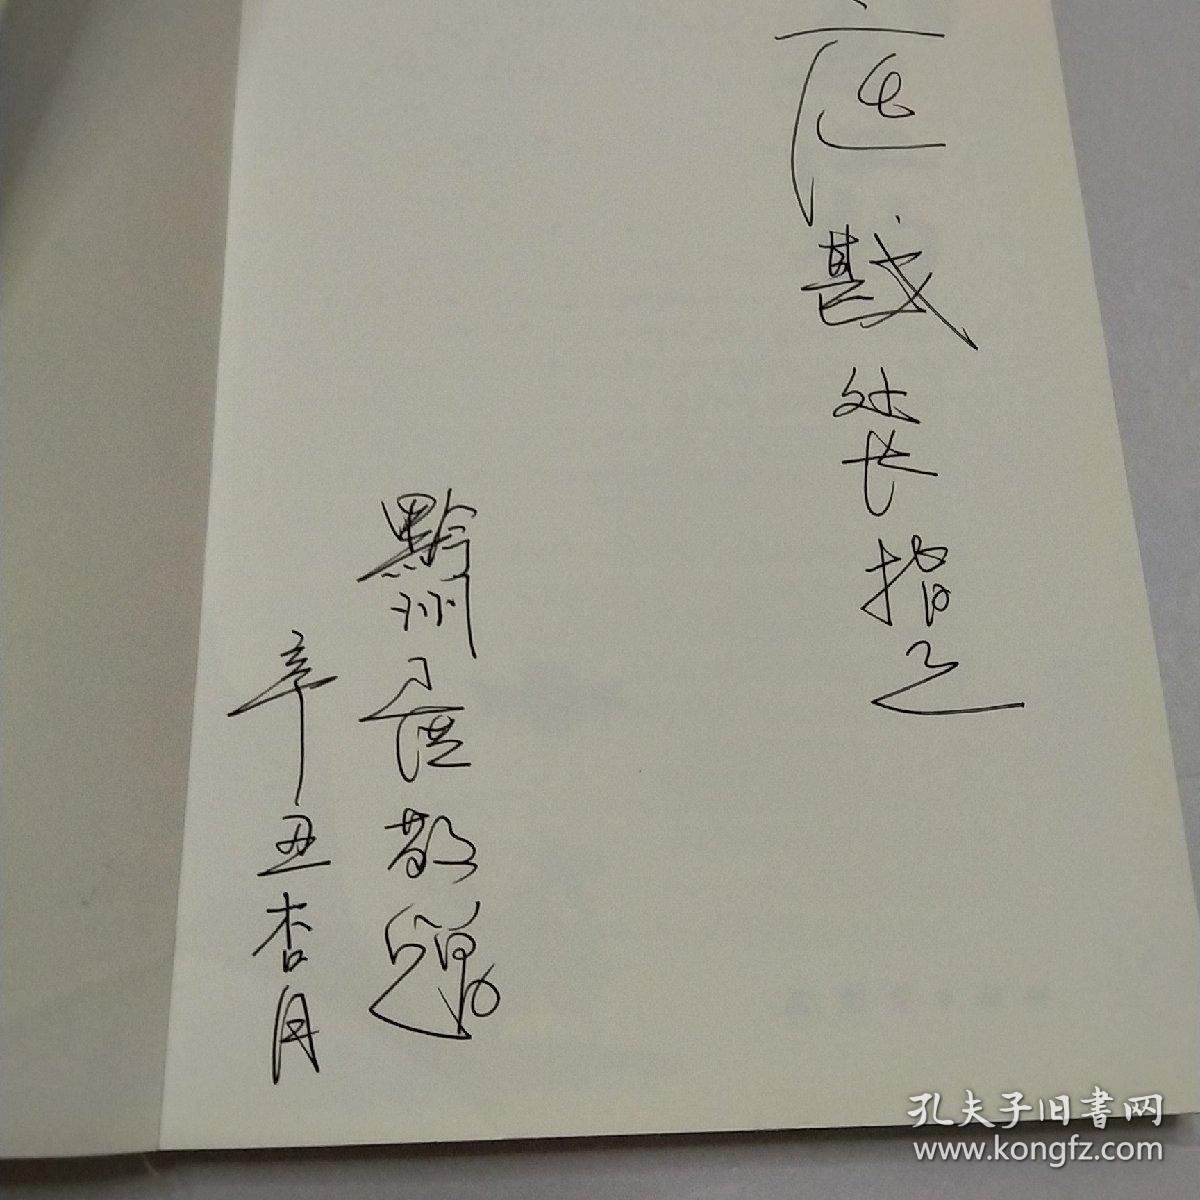 戡处长指之
黔州
敬题
辛丑杏月
孔夫子旧书网
www.kongfz.com